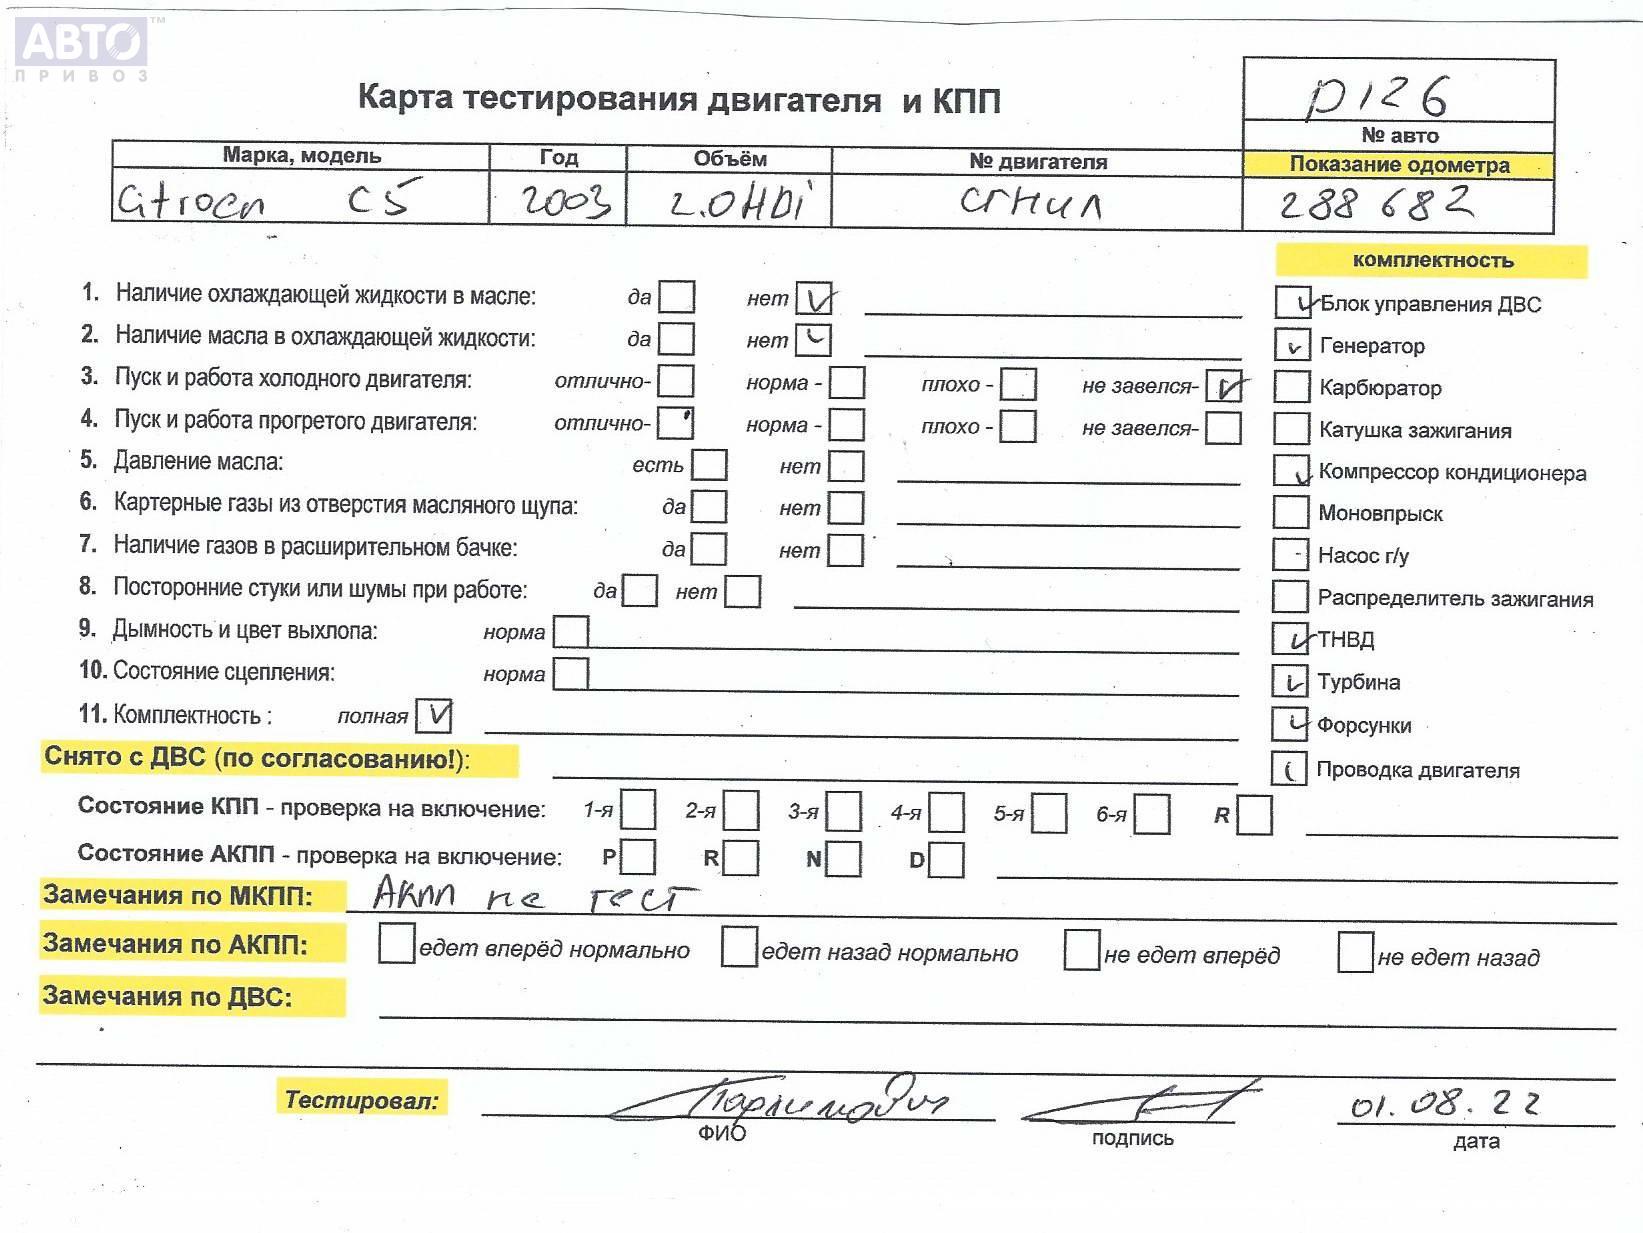 АВТО™
ПРИВОЗ
Карта тестирования двигателя и КПП
р126
№ авто
Марка, модель Год Объём № двигателя Показание одометра
Citroen C5 2003 2.0HDi сгнил 288 682
комплектность
1. Наличие охлаждающей жидкости в масле: да нет Блок управления ДВС
2. Наличие масла в охлаждающей жидкости: да нет Генератор
3. Пуск и работа холодного двигателя: отлично- норма - плохо - не завелся- Карбюратор
4. Пуск и работа прогретого двигателя: отлично- норма - плохо - не завелся- Катушка зажигания
5. Давление масла: есть нет Компрессор кондиционера
6. Картерные газы из отверстия масляного щупа: да нет Моновпрыск
7. Наличие газов в расширительном бачке: да нет Насос г/у
8. Посторонние стуки или шумы при работе: да нет Распределитель зажигания
9. Дымность и цвет выхлопа: норма ТНВД
10. Состояние сцепления: норма Турбина
11. Комплектность : полная Форсунки
Снято с ДВС (по согласованию!): Проводка двигателя
Состояние КПП - проверка на включение: 1-я 2-я 3-я 4-я 5-я 6-я R
Состояние АКПП - проверка на включение: P R N D
Замечания по МКПП: АКПП не тест
Замечания по АКПП: едет вперёд нормально едет назад нормально не едет вперёд не едет назад
Замечания по ДВС:
Тестировал: 01.08.22
ФИО подпись дата